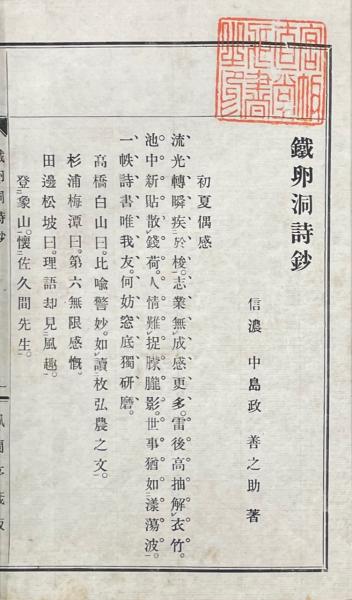 鐵卵洞詩鈔
信濃 中島政 善之助 著
初夏偶感
流光轉瞬疾於梭。志業無成感更多。雷後高抽解衣竹。
池中新貼散錢荷。人情難捉朦朧影。世事猶如漾蕩波。
一帙詩書唯我友。何妨窓底獨硏磨。
高橋白山曰。比喩警妙。如讀枚弘農之文。
杉浦梅潭曰。第六無限感慨。
田邊松坡曰。理語却見風趣。
登象山。懷佐久間先生。